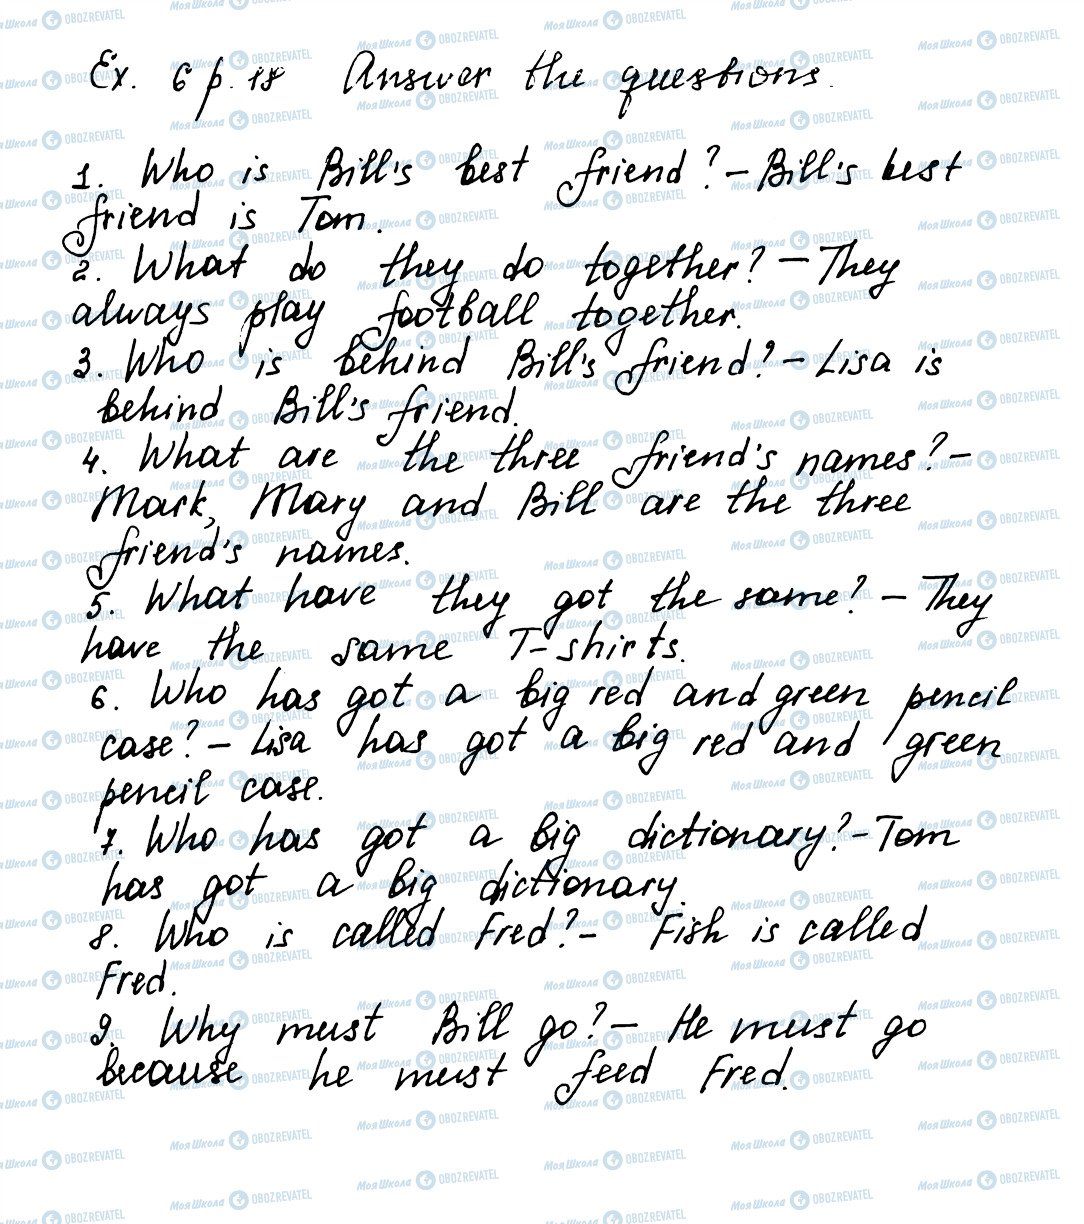 Ex. 6 p. 18 Answer the questions.
1. Who is Bill's best friend? – Bill's best
friend is Tom.
2. What do they do together? – They
always play football together.
3. Who is behind Bill's friend? – Lisa is
behind Bill's friend.
4. What are the three friend's names? –
Mark, Mary and Bill are the three
friend's names.
5. What have they got the same? – They
have the same T-shirts.
6. Who has got a big red and green pencil
case? – Lisa has got a big red and green
pencil case.
7. Who has got a big dictionary? – Tom
has got a big dictionary.
8. Who is called Fred? – Fish is called
Fred.
9. Why must Bill go? – He must go
because he must feed Fred.
МояШкола OBOZREVATEL